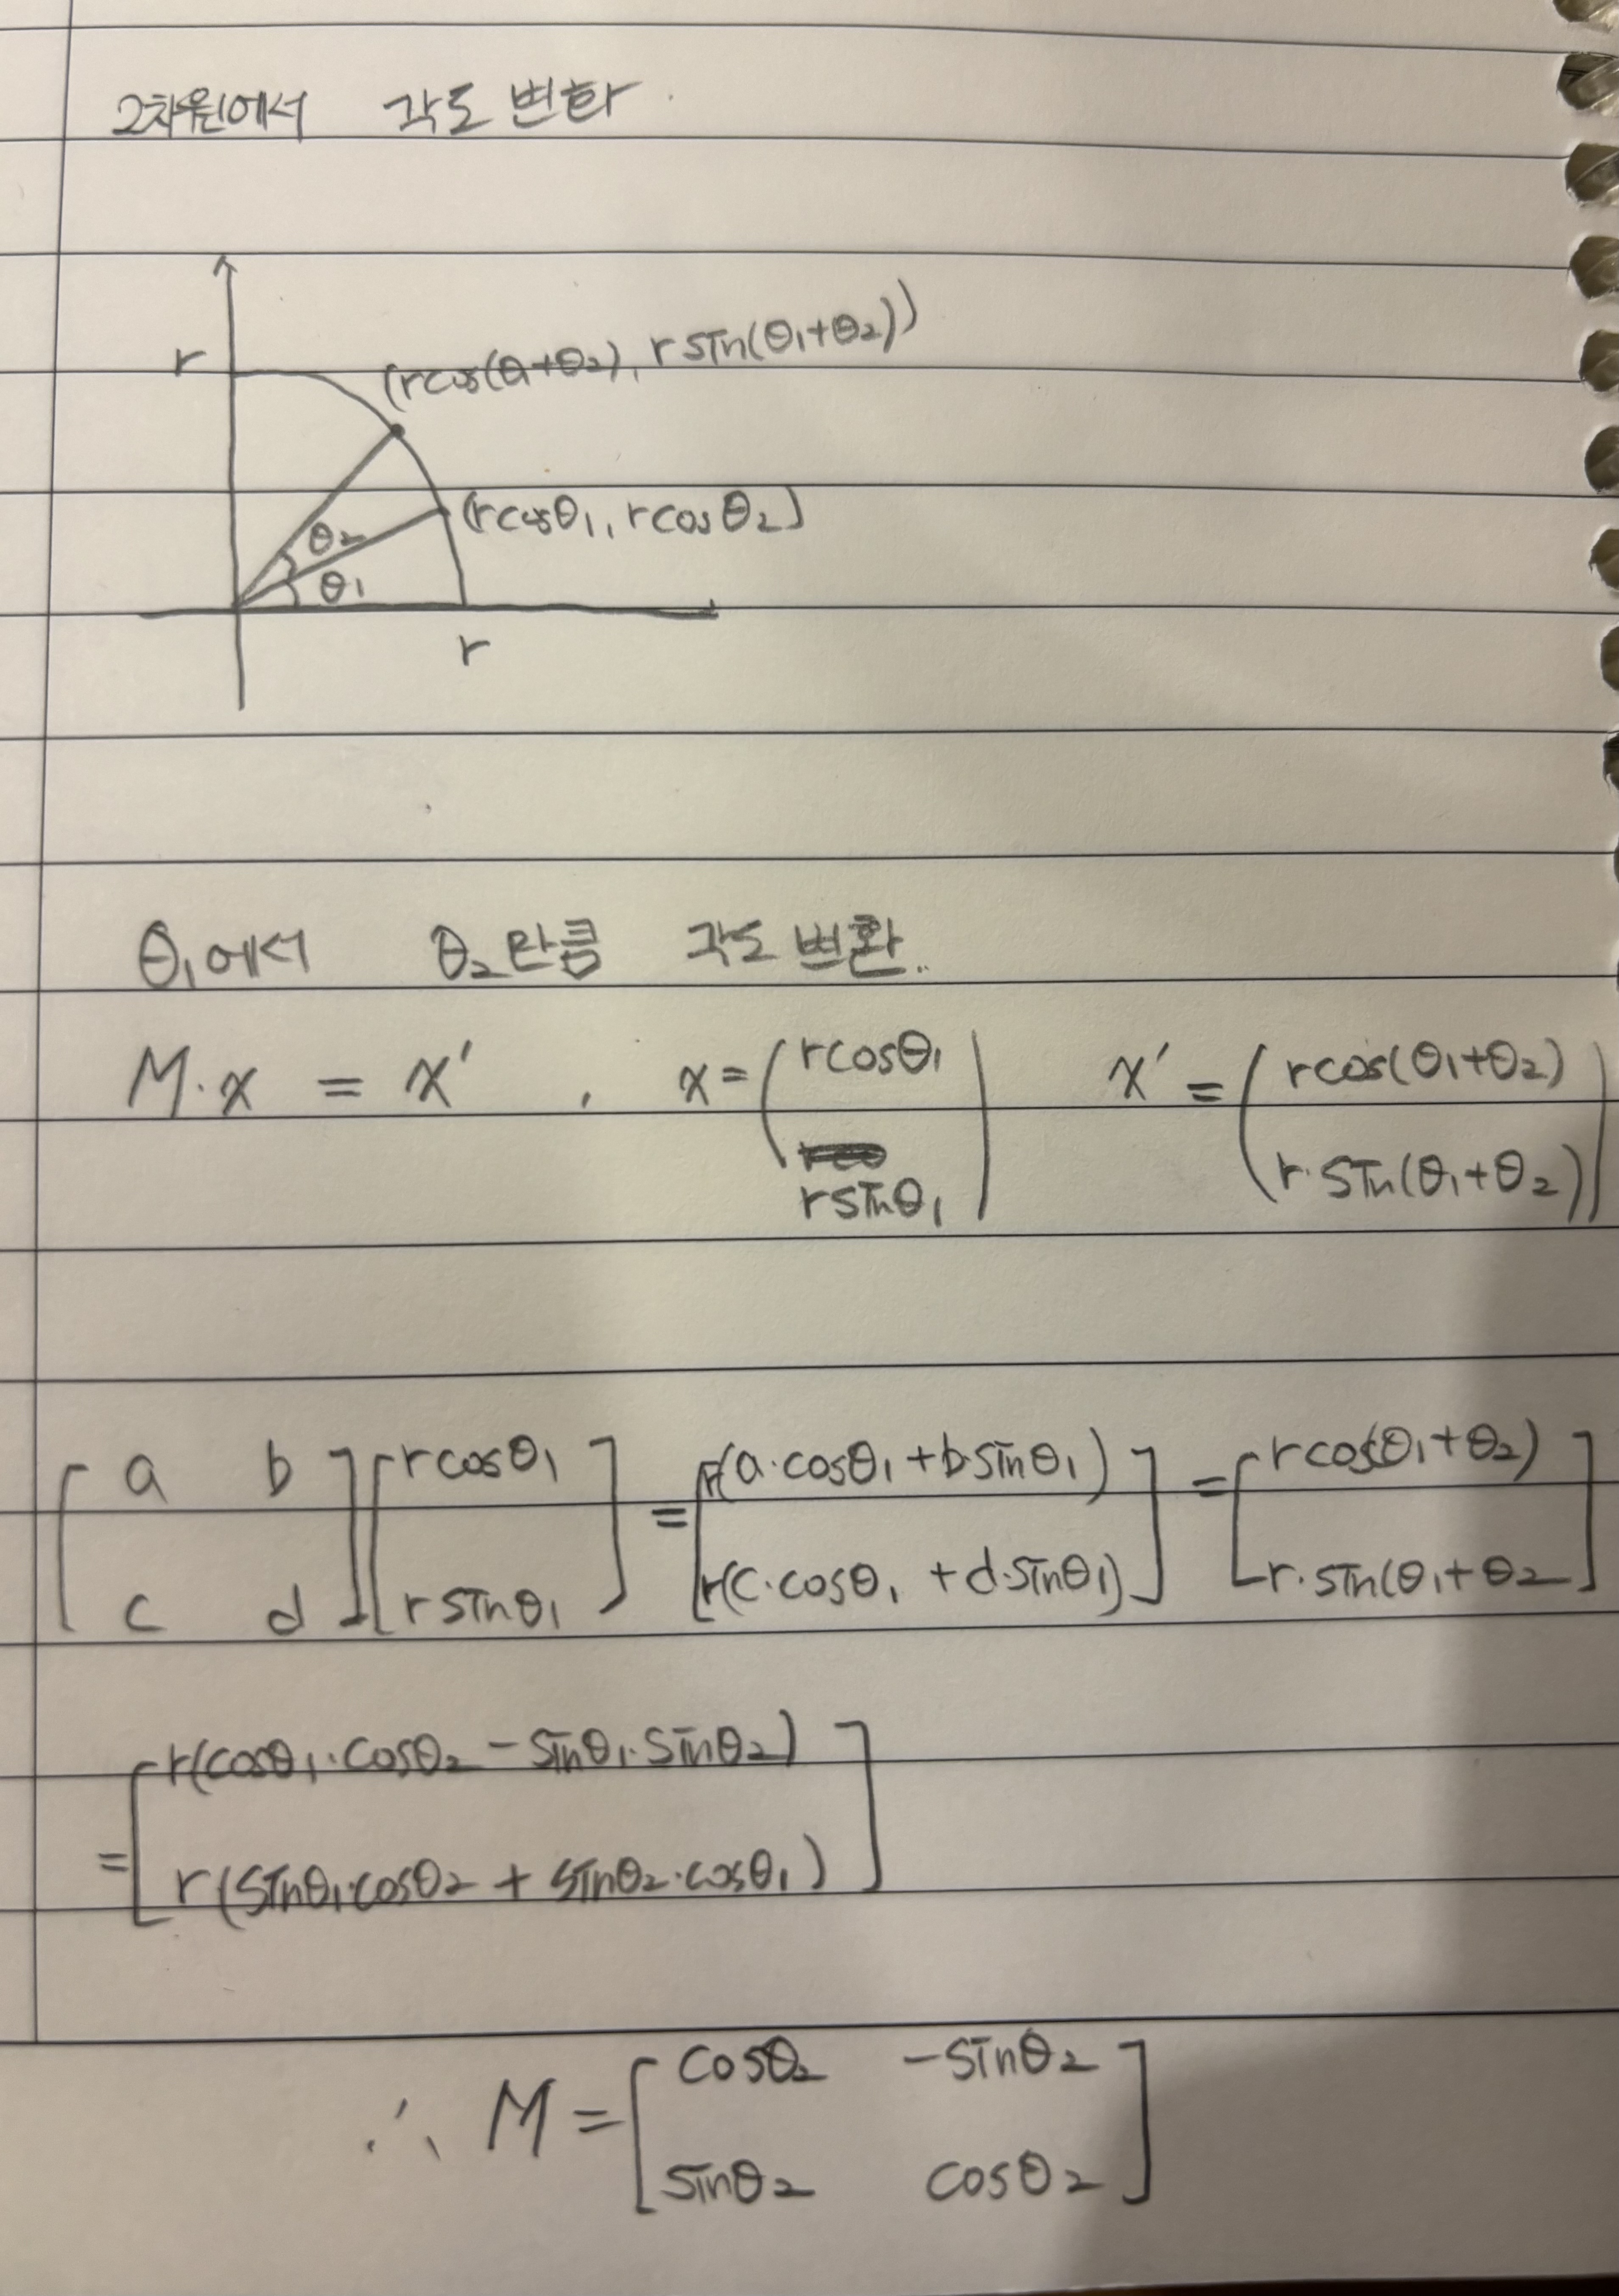 2차원에서 각도 변화
r
(rcos(θ1+θ2), rsin(θ1+θ2))
(rcosθ1, rcosθ2)
θ2
θ1
r
θ1에서 θ2만큼 각도 변환..
M·x = x' , x = (rcosθ1 rsinθ1) x' = (rcos(θ1+θ2) r·sin(θ1+θ2))
[a b c d] [rcosθ1 rsinθ1] = [r(a·cosθ1+b·sinθ1) r(c·cosθ1 +d·sinθ1)] = [rcos(θ1+θ2) r·sin(θ1+θ2]
= [r(cosθ1·cosθ2 - sinθ1·sinθ2) r(sinθ1·cosθ2 + sinθ2·cosθ1)]
∴ M = [cosθ2 -sinθ2 sinθ2 cosθ2]